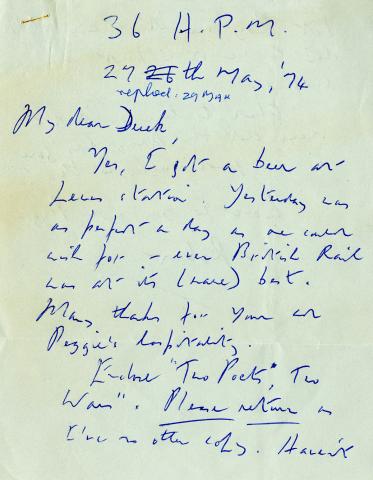 36 H.P.M.
27 26th May, '74
replied: 29 MAY
My dear Derek,
Yes, I got a beer at
Lewes station. Yesterday was
as perfect a day as one could
wish for – even British Rail
was at its (rare) best.
Many thanks for your and
Peggie's hospitality.
Enclose "Two Poets", Two
Wars". Please return as
I've no other copy. Haven't